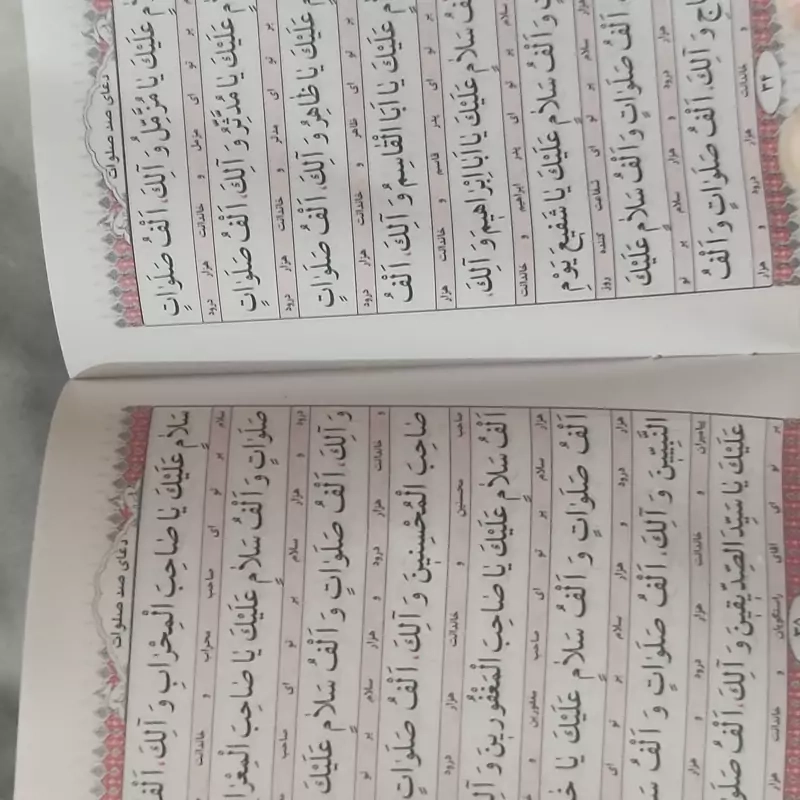 دعای صد صلوات
عَلَيْكَ يَا مُزَّمِّلُ وَ آلِكَ، اَلْفُ صَلَوَاتٍ
بر تو ای مزمل و خاندانت هزار درود
عَلَيْكَ يَا مُدَّثِّرُ وَ آلِكَ، اَلْفُ صَلَوَاتٍ
بر تو ای مدثر و خاندانت هزار درود
عَلَيْكَ يَا طَاهِرُ وَ آلِكَ، اَلْفُ صَلَوَاتٍ
بر تو ای طاهر و خاندانت هزار درود
عَلَيْكَ يَا اَبَا الْقَاسِمِ وَ آلِكَ، اَلْفُ
بر تو ای پدر قاسم و خاندانت هزار
سَلَامٍ عَلَيْكَ يَا اَبَا اِبْرَاهِيمَ وَ آلِكَ،
سلام بر تو ای پدر ابراهیم و خاندانت
وَ اَلْفُ سَلَامٍ عَلَيْكَ يَا شَفِيعَ يَوْمِ
هزار سلام بر تو ای شفاعت کننده روز
اَلْفُ صَلَوَاتٍ وَ اَلْفُ سَلَامٍ عَلَيْكَ
هزار درود و هزار سلام بر تو
وَ آلِكَ، اَلْفُ صَلَوَاتٍ وَ اَلْفُ
و خاندانت هزار درود و هزار
دعای صد صلوات
سَلَامٍ عَلَيْكَ يَا صَاحِبَ الْمِحْرَابِ وَ آلِكَ،
سلام بر تو ای صاحب محراب و خاندانت
صَلَوَاتٍ وَ اَلْفُ سَلَامٍ عَلَيْكَ يَا صَاحِبَ
درود و هزار سلام بر تو ای صاحب
وَ آلِكَ، اَلْفُ صَلَوَاتٍ وَ اَلْفُ سَلَامٍ عَلَيْكَ
و خاندانت هزار درود و هزار سلام بر تو
صَاحِبَ الْمُحْسِنِينَ وَ آلِكَ، اَلْفُ صَلَوَاتٍ
صاحب محسنین و خاندانت هزار درود
اَلْفُ سَلَامٍ عَلَيْكَ يَا صَاحِبَ الْمَغْفُورِينَ وَ
هزار سلام بر تو ای صاحب مغفورین و
اَلْفُ صَلَوَاتٍ وَ اَلْفُ سَلَامٍ عَلَيْكَ يَا
هزار درود و هزار سلام بر تو ای
النَّبِيِّينَ وَ آلِكَ، اَلْفُ صَلَوَاتٍ وَ اَلْفُ
پیامبران و خاندانت هزار درود و هزار
عَلَيْكَ يَا سَيِّدَ الصِّدِّيقِينَ وَ آلِكَ، اَلْفُ
بر تو ای آقای راستگویان و خاندانت هزار